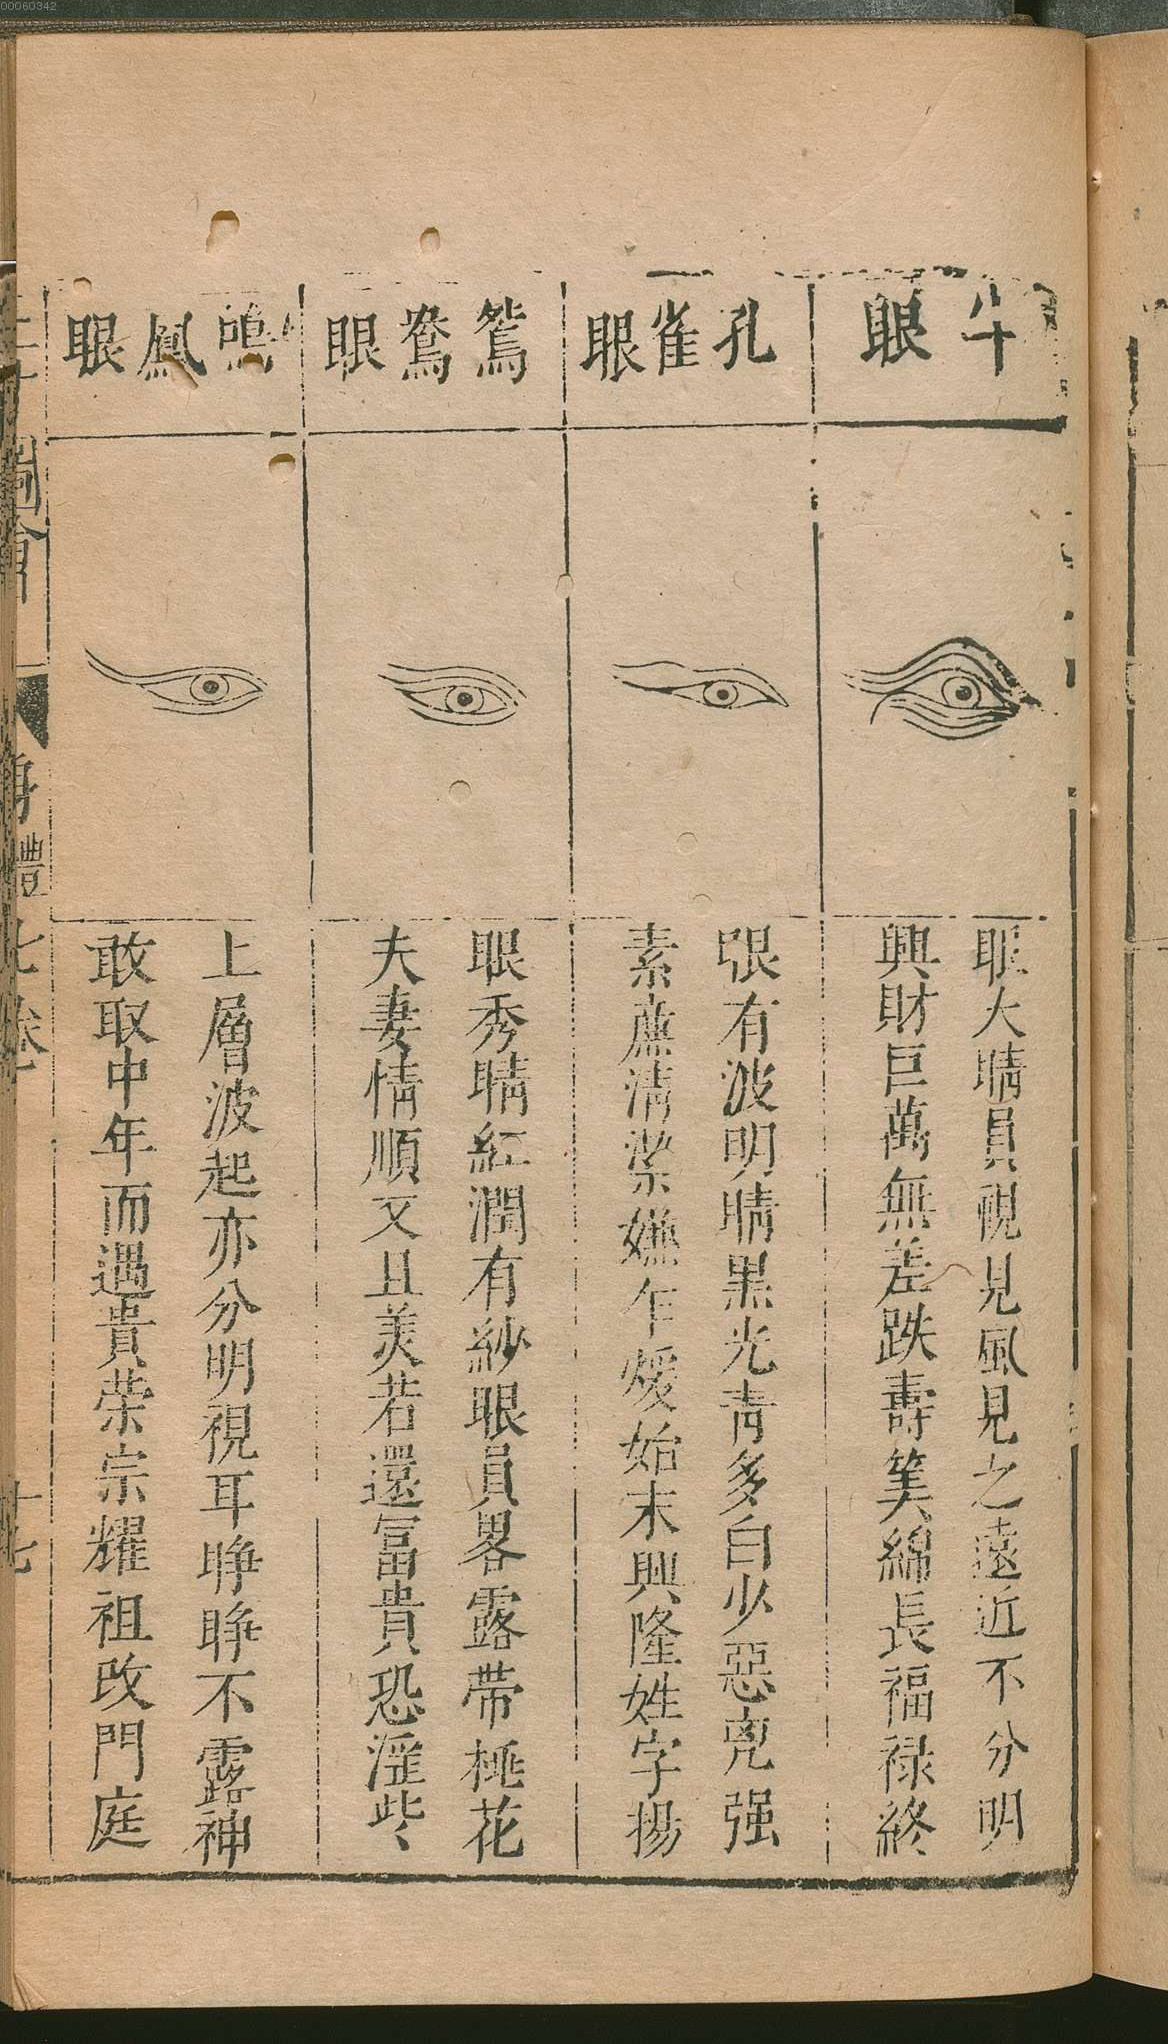 00060342
牛眼
眼大睛員視見風見之遠近不分明
興財巨萬無差跌壽筭綿長福祿終
孔雀眼
眼有波明睛黑光青多白少惡兇强
素亷清潔嫌乍煖始末興隆姓字揚
鴛鴦眼
眼秀睛紅潤有紗眼員畧露帶桃花
夫妻情順又且美若還冨貴恐淫些
鳴鳳眼
上層波起亦分明視耳睁睁不露神
敢取中年而遇貴荣宗耀祖改門庭
圖會
身體七卷
十七